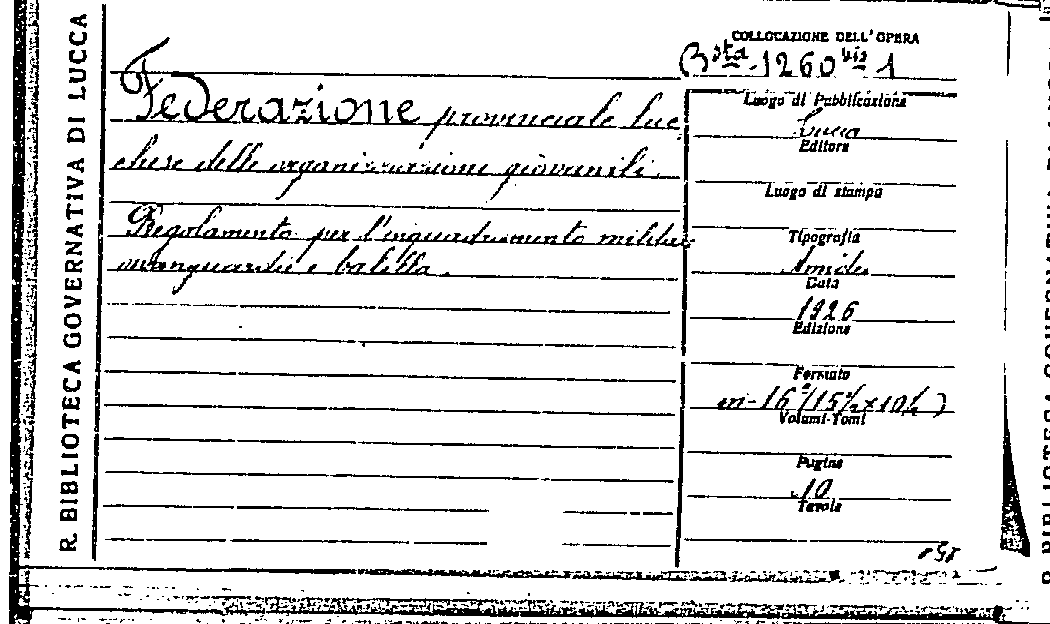 R. BIBLIOTECA GOVERNATIVA DI LUCCA
COLLOCAZIONE DELL'OPERA
Bsta-1260 bis 1
Federazione provinciale luc
chese delle organizzazione giovanili.
Regolamento per l'inquadramento militar
avanguardie e balilla.
Luogo di Pubblicazione
Lucca
Editore
Luogo di stampa
Tipografia
Data
1926
Edizione
Formato
in-16°(15½x10½)
Volumi-Tomi
Pagine
10
Tavole